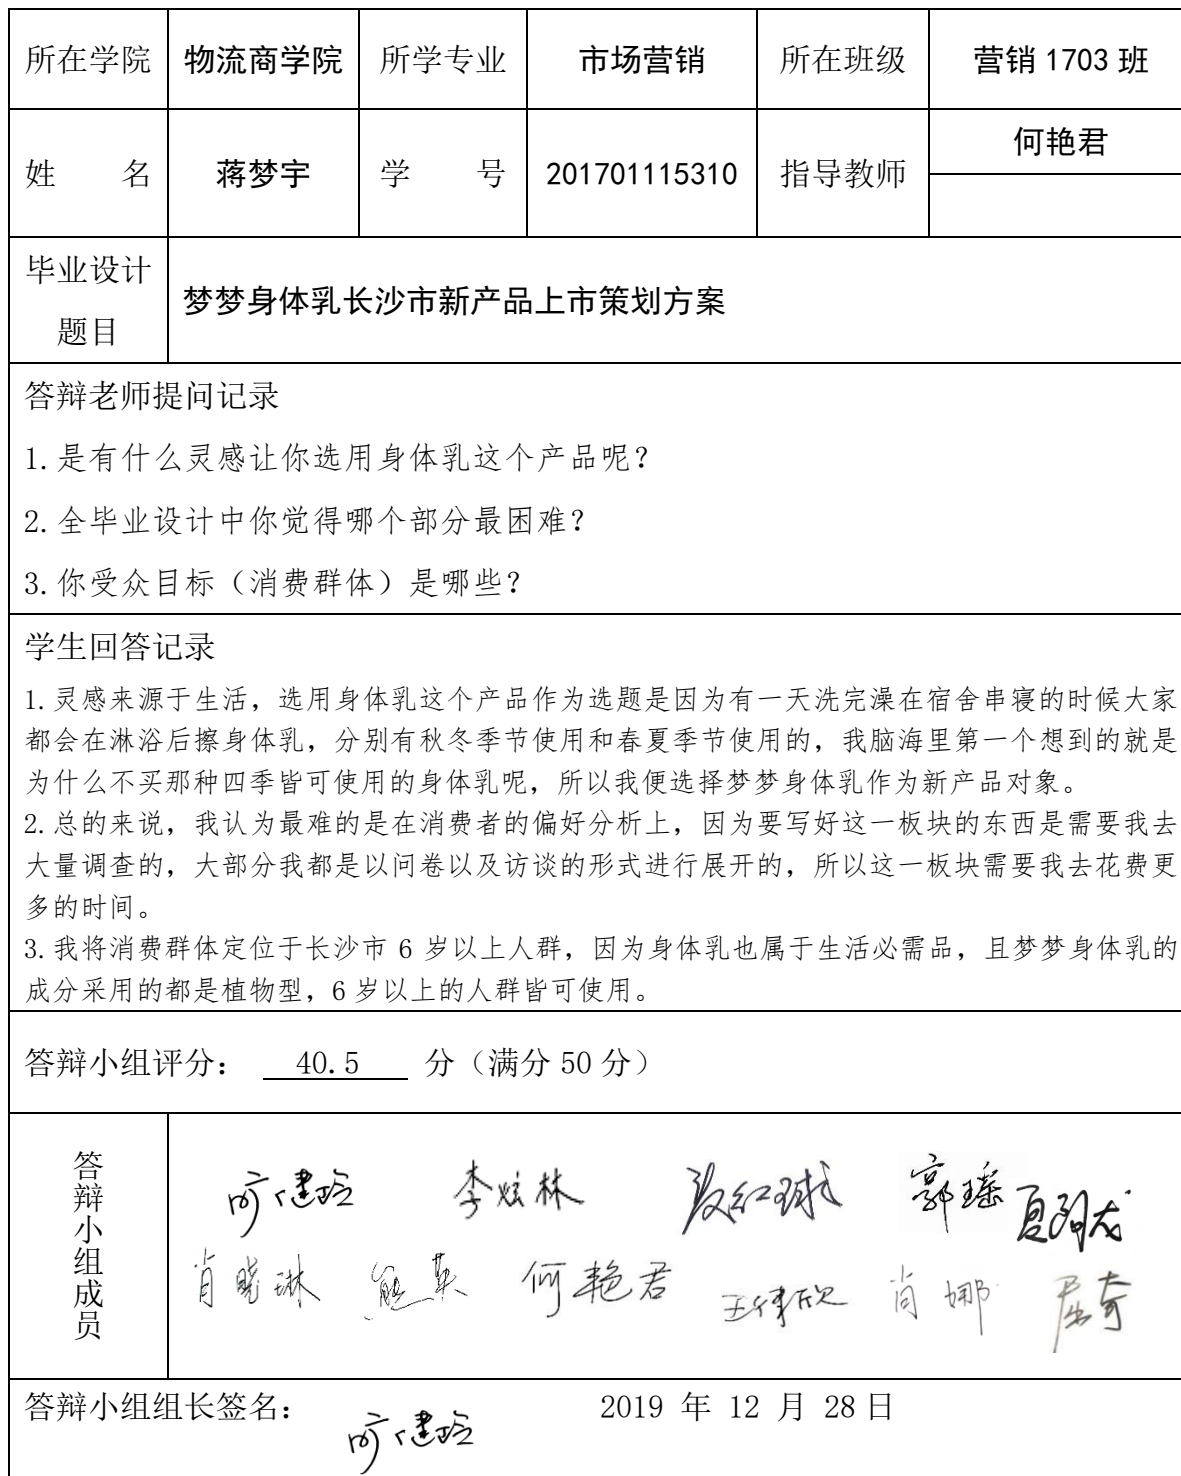 所在学院 物流商学院 所学专业 市场营销 所在班级 营销 1703 班
姓 名 蒋梦宇 学 号 201701115310 指导教师 何艳君
毕业设计
题目
梦梦身体乳长沙市新产品上市策划方案
答辩老师提问记录
1.是有什么灵感让你选用身体乳这个产品呢?
2.全毕业设计中你觉得哪个部分最困难?
3.你受众目标（消费群体）是哪些?
学生回答记录
1.灵感来源于生活，选用身体乳这个产品作为选题是因为有一天洗完澡在宿舍串寝的时候大家
都会在淋浴后擦身体乳，分别有秋冬季节使用和春夏季节使用的，我脑海里第一个想到的就是
为什么不买那种四季皆可使用的身体乳呢，所以我便选择梦梦身体乳作为新产品对象。
2.总的来说，我认为最难的是在消费者的偏好分析上，因为要写好这一板块的东西是需要我去
大量调查的，大部分我都是以问卷以及访谈的形式进行展开的，所以这一板块需要我去花费更
多的时间。
3.我将消费群体定位于长沙市 6 岁以上人群，因为身体乳也属于生活必需品，且梦梦身体乳的
成分采用的都是植物型，6 岁以上的人群皆可使用。
答辩小组评分： 40.5 分（满分 50 分）
答辩小组成员
李炫林 郭瑶
肖晓琳 熊英 何艳君 肖娜 屈奇
答辩小组组长签名： 2019 年 12 月 28 日